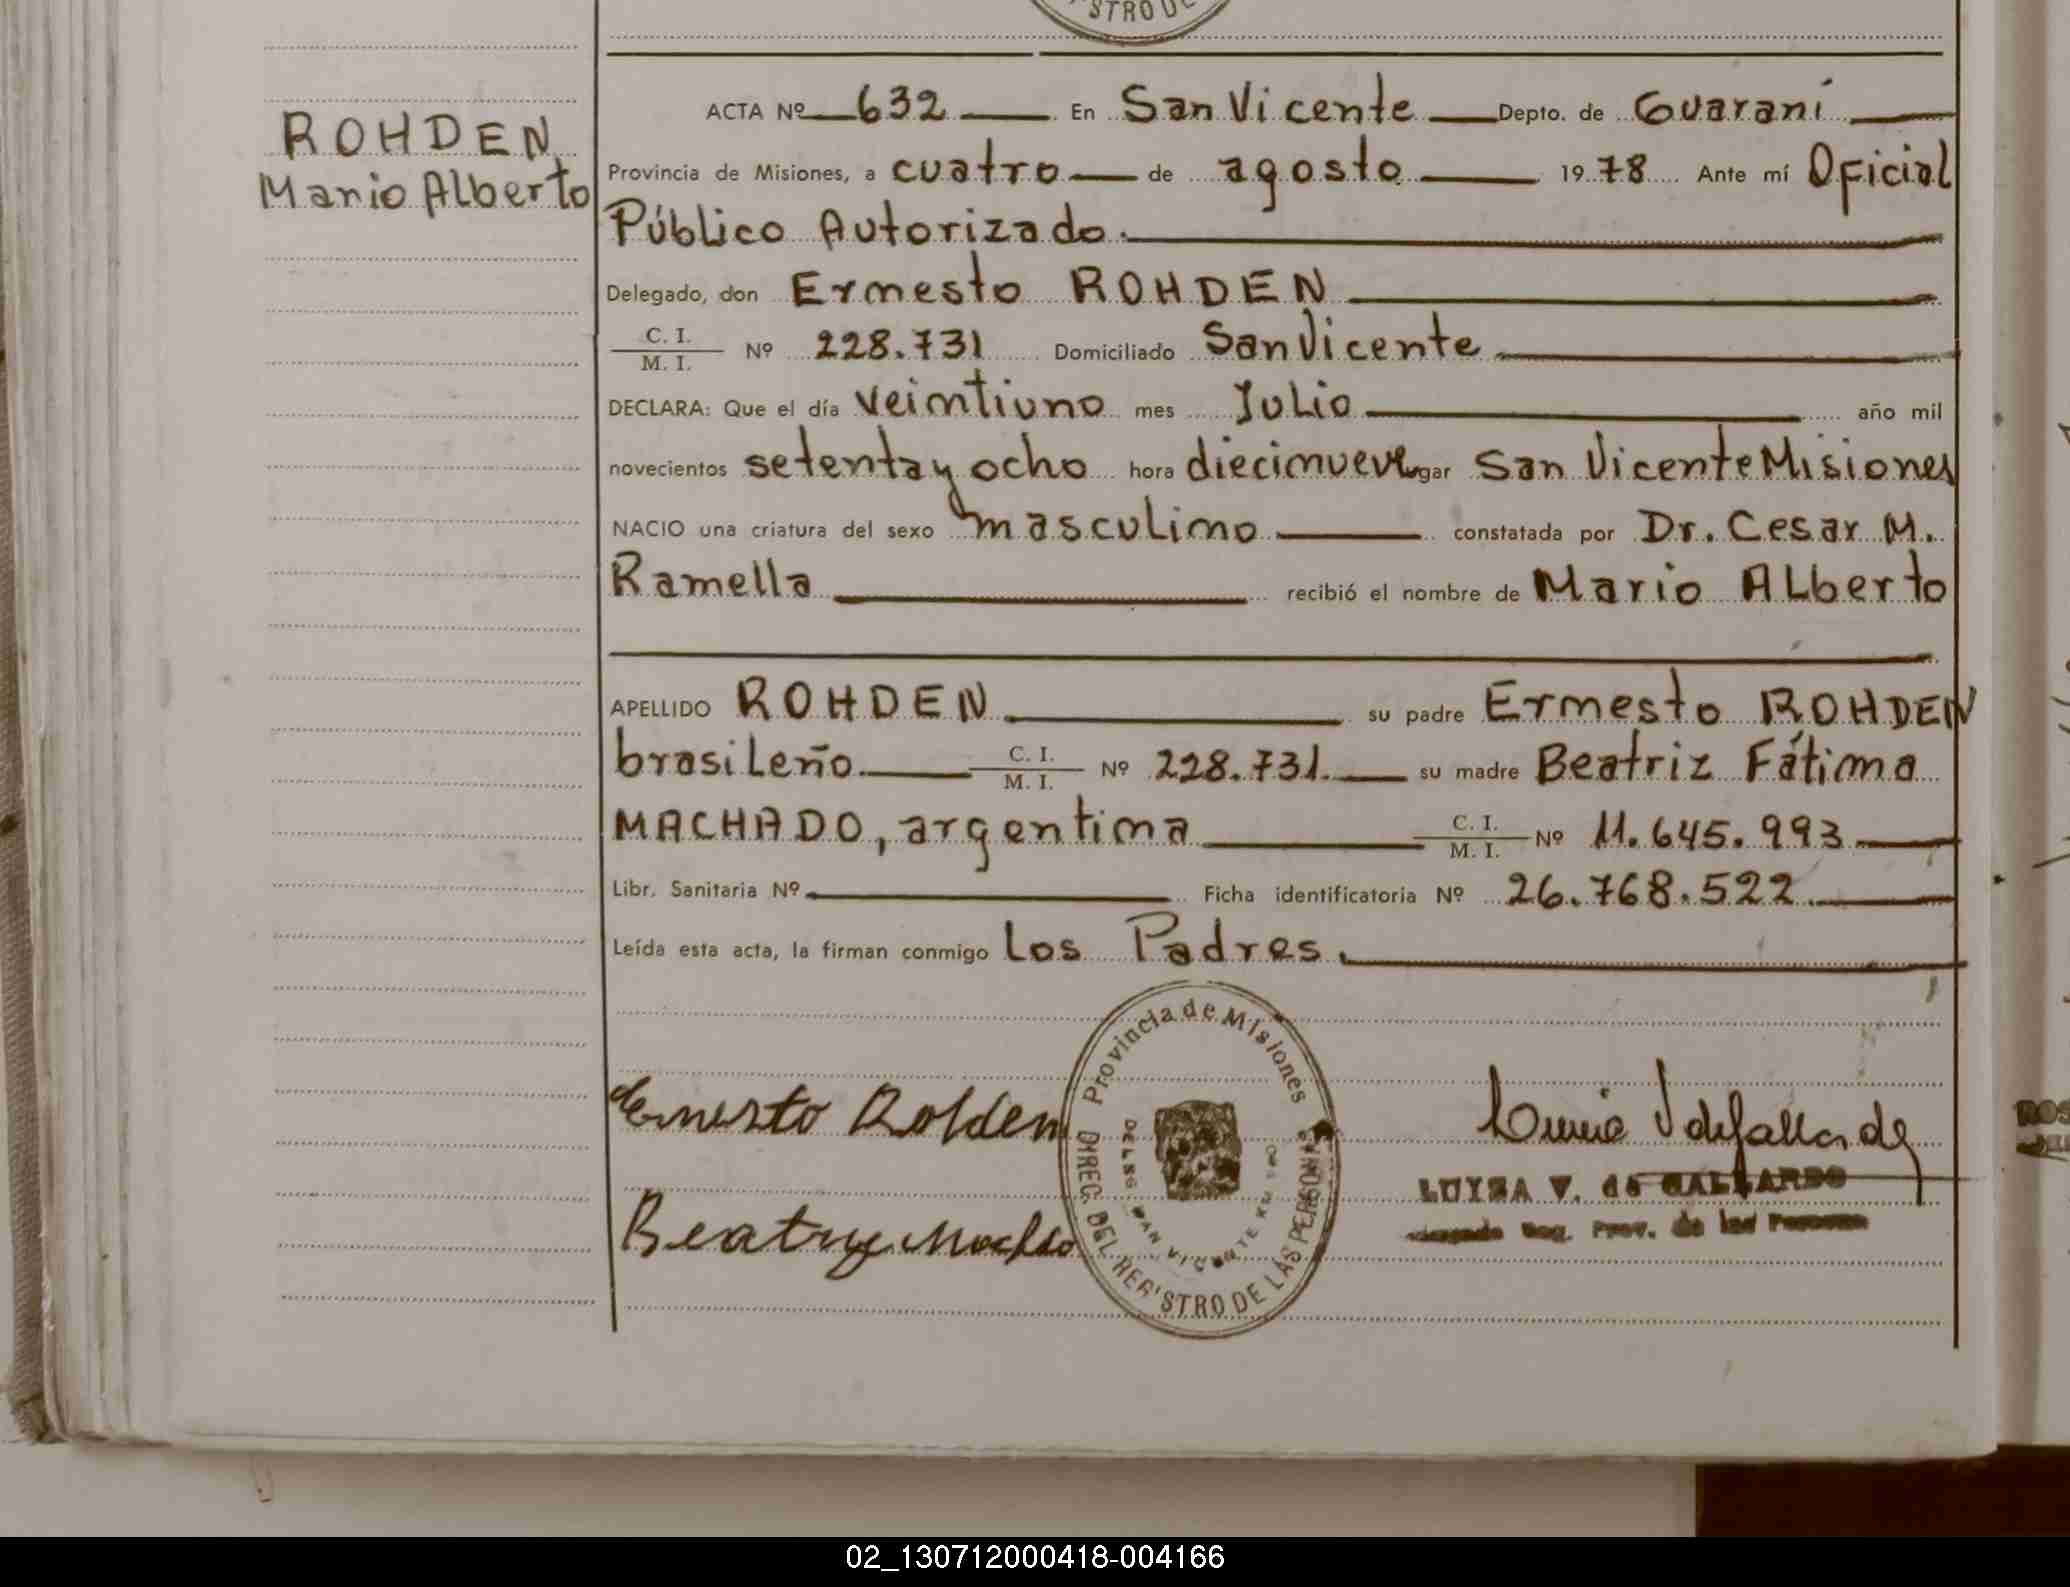 STRO DE
ROHDEN
Mario Alberto
ACTA Nº 632 En San Vicente Depto. de Guaraní
Provincia de Misiones, a cuatro de agosto 1978 Ante mí Oficial
Público Autorizado.
Delegado, don Ernesto ROHDEN
C. I.
M. I. Nº 228.731 Domiciliado San Vicente
DECLARA: Que el día veintiuno mes Julio año mil
novecientos setenta y ocho hora diecinueve gar San Vicente Misiones
NACIO una criatura del sexo masculino constatada por Dr. Cesar M.
Ramella recibió el nombre de Mario Alberto
APELLIDO ROHDEN su padre Ernesto ROHDEN
brasileño C. I.
M. I. Nº 228.731. su madre Beatriz Fátima
MACHADO, argentina C. I.
M. I. Nº 11.645.993
Libr. Sanitaria Nº Ficha identificatoria Nº 26.768.522.
Leída esta acta, la firman conmigo Los Padres.
Provincia de Misiones
DIREC. DEL REGISTRO DE LAS PERSONAS
SAN VICENTE
Ernesto Rohden
Beatriz Machado
LUISA V. de GALLARDO
Reg. Prov. de las Personas
ROS
02_130712000418-004166